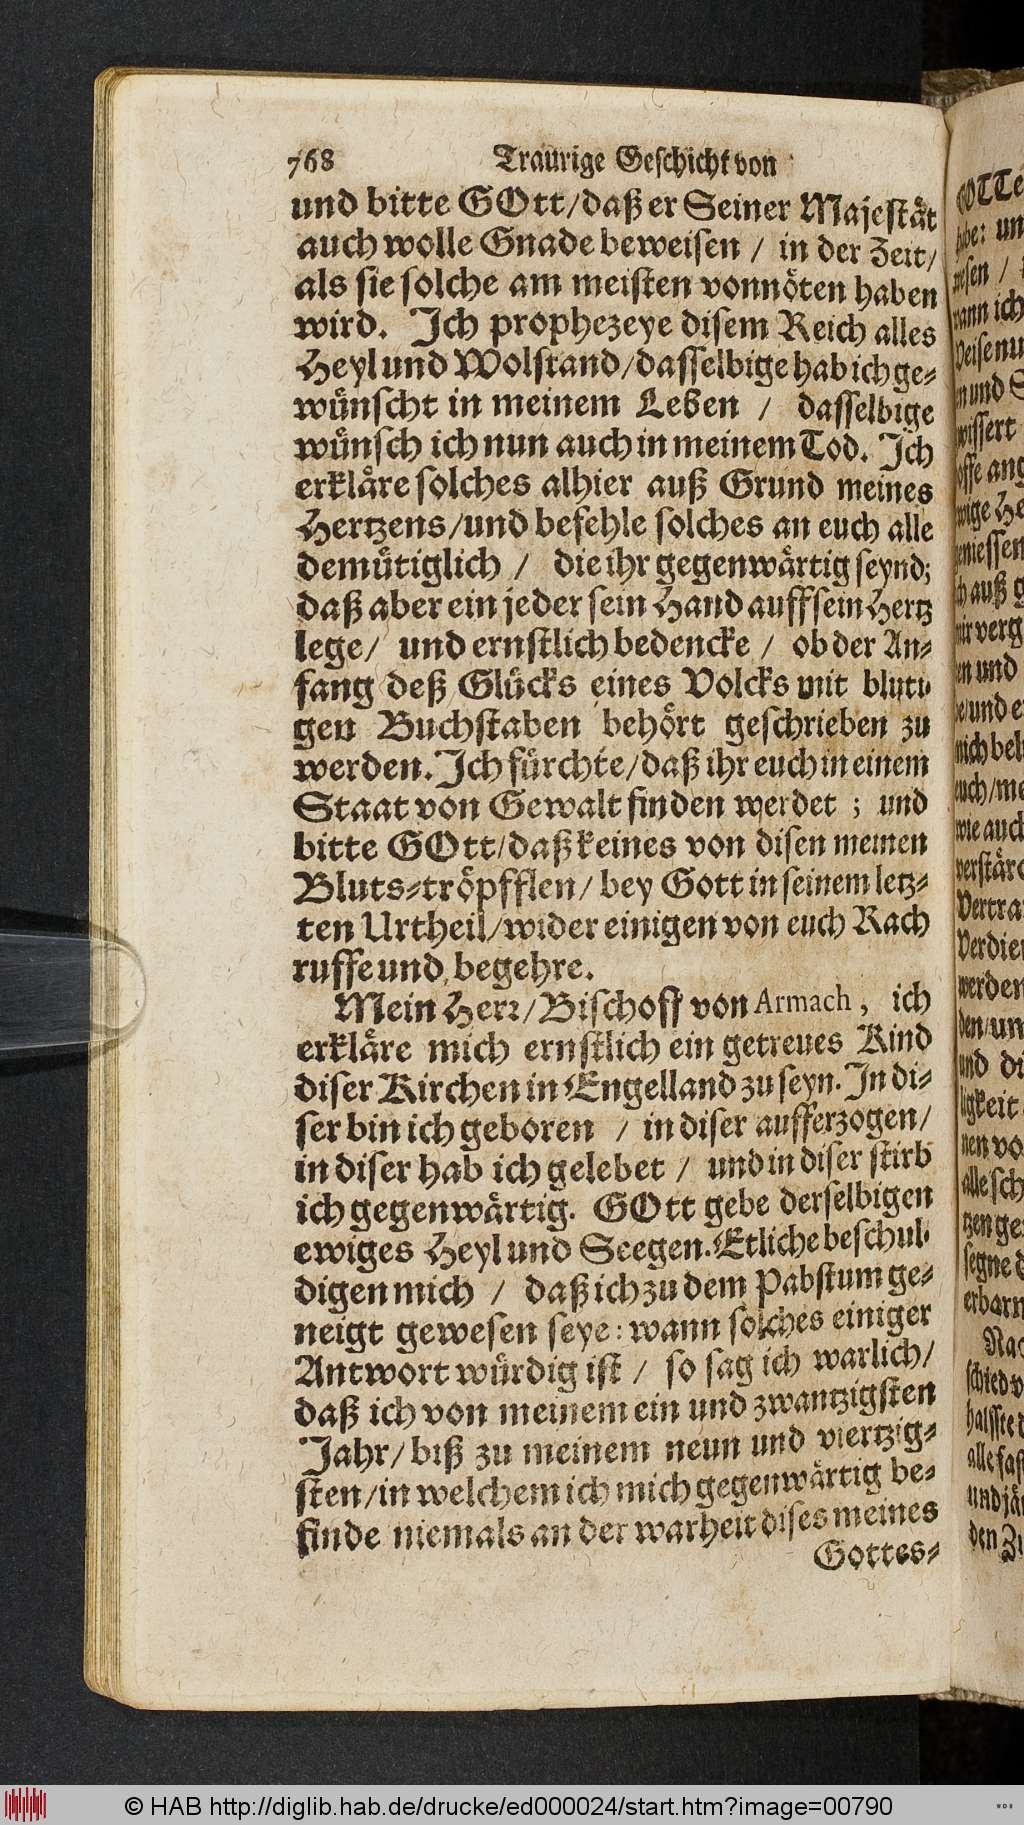 768 Traurige Geschicht von
und bitte GOtt/daß er Seiner Majestät
auch wolle Gnade beweisen / in der Zeit/
als sie solche am meisten vonnöten haben
wird. Ich prophezeye disem Reich alles
Heyl und Wolstand/dasselbige hab ich ge-
wünscht in meinem Leben / dasselbige
wünsch ich nun auch in meinem Tod. Ich
erkläre solches alhier auß Grund meines
Hertzens/und befehle solches an euch alle
demütiglich / die ihr gegenwärtig seynd;
daß aber ein jeder sein Hand auff sein Hertz
lege/ und ernstlich bedencke / ob der An-
fang deß Glücks eines Volcks mit bluti-
gen Buchstaben behört geschrieben zu
werden. Ich fürchte/daß ihr euch in einem
Staat von Gewalt finden werdet ; und
bitte GOtt/daß keines von disen meinen
Bluts-tröpfflen/ bey Gott in seinem letz-
ten Urtheil/wider einigen von euch Rach
ruffe und begehre.
Mein Herr/Bischoff von Armach, ich
erkläre mich ernstlich ein getreues Kind
diser Kirchen in Engelland zu seyn. In di-
ser bin ich geboren / in diser aufferzogen/
in diser hab ich gelebet / und in diser stirb
ich gegenwärtig. GOtt gebe derselbigen
ewiges Heyl und Seegen. Etliche beschul-
digen mich / daß ich zu dem Pabstum ge-
neigt gewesen seye: wann solches einiger
Antwort würdig ist / so sag ich warlich/
daß ich von meinem ein und zwantzigsten
Jahr/biß zu meinem neun und viertzig-
sten/in welchem ich mich gegenwärtig be-
finde niemals an der warheit dises meines
Gottes-
© HAB http://diglib.hab.de/drucke/ed000024/start.htm?image=00790